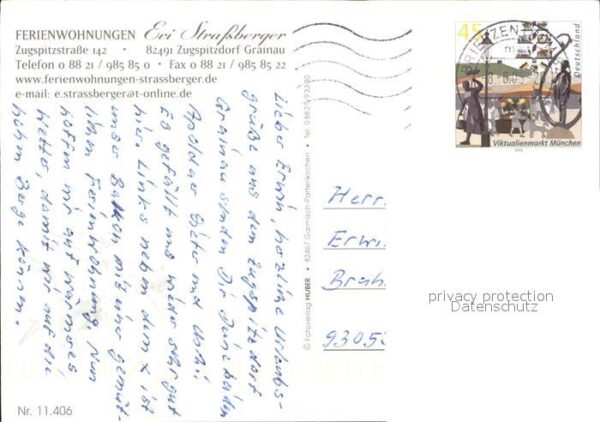 FERIENWOHNUNGEN Evi Straßberger
Zugspitzstraße 142 · 82491 Zugspitzdorf Grainau
Telefon 0 88 21 / 985 85 0 · Fax 0 88 21 / 985 85 22
www.ferienwohnungen-strassberger.de
e-mail: e.strassberger@t-online.de
Lieber Erwin, herzliche Urlaubs-
grüße aus dem Zugspitzdorf
Grainau senden Dir Deine beiden
Peter und
Es gefällt uns wieder sehr gut
hier. Links neben dem x ist
unser Balkon mit einer gemüt-
lichen Ferienwohnung. Nun
hoffen wir auf wärmeres
Wetter, damit wir auf die
hohen Berge können.
© Fotoverlag HUBER · 82467 Garmisch-Partenkirchen · Tel. 08821/93390
Nr. 11.406
45
Deutschland
Viktualienmarkt München
BRIEFZENTRUM
Herrn
Erwi
9305
privacy protection
Datenschutz